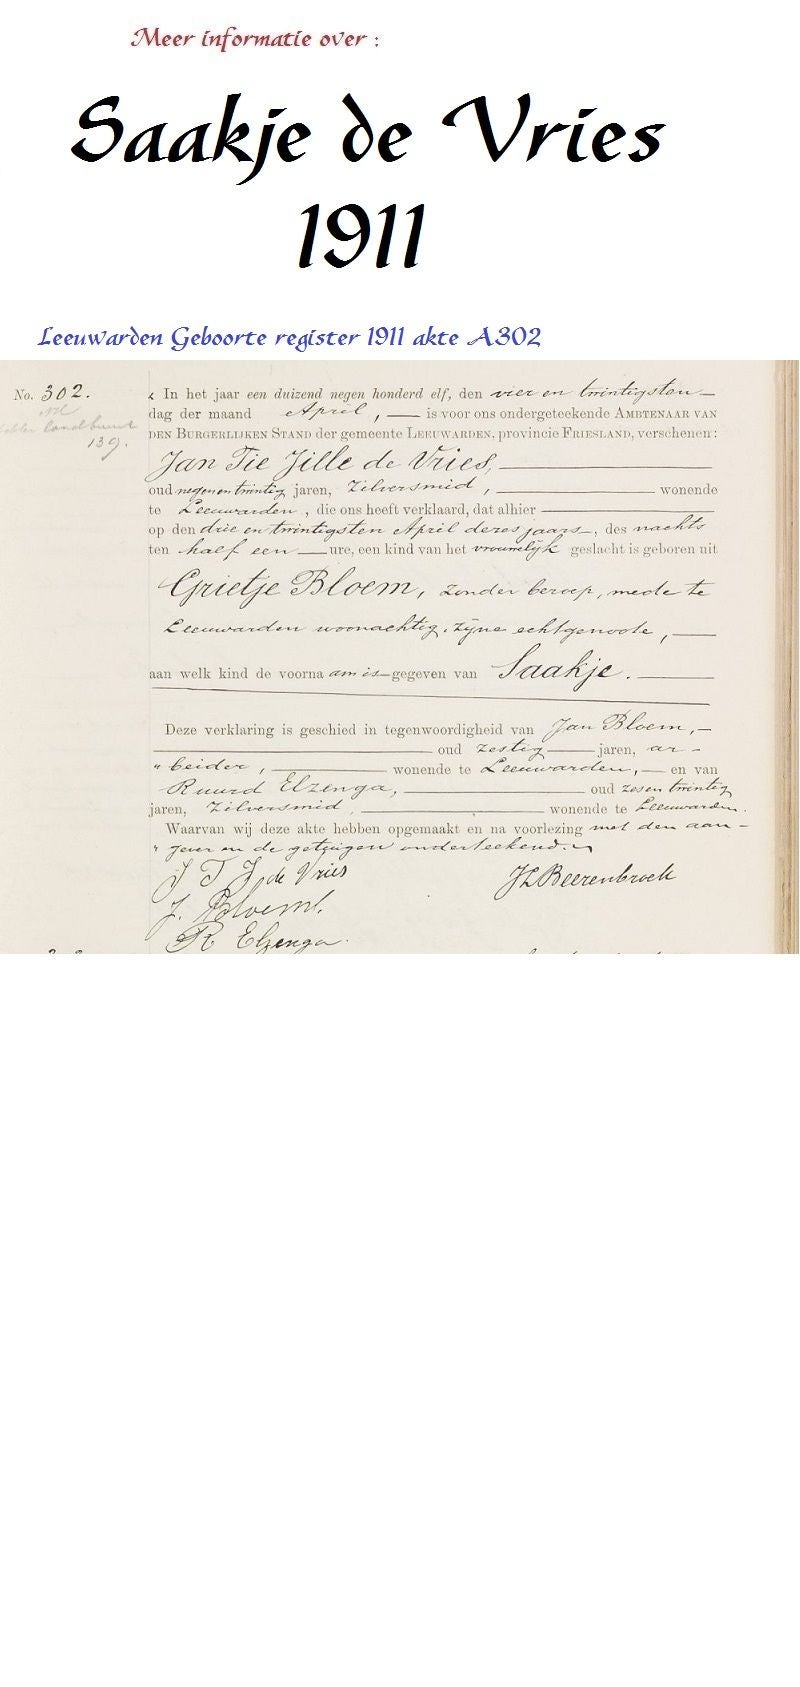 Meer informatie over :
Saakje de Vries
1911
Leeuwarden Geboorte register 1911 akte A302
No. 302.
139.
In het jaar een duizend negen honderd elf, den vier en twintigsten
dag der maand April, is voor ons ondergeteekende AMBTENAAR VAN
DEN BURGERLIJKEN STAND der gemeente LEEUWARDEN, provincie FRIESLAND, verschenen:
Jan Tie Jille de Vries,
oud negenentwintig jaren, zilversmid, wonende
te Leeuwarden, die ons heeft verklaard, dat alhier
op den drie en twintigsten April dezes jaars, des nachts
ten half een ure, een kind van het vrouwelijk geslacht is geboren uit
Grietje Bloem, zonder beroep, mede te
Leeuwarden woonachtig, zijne echtgenoote,
aan welk kind de voornaam is gegeven van Saakje.
Deze verklaring is geschied in tegenwoordigheid van Jan Bloem,
oud zestig jaren, ar-
"beider, wonende te Leeuwarden, en van
Ruurd Elzenga, oud zesentwintig
jaren, zilversmid, wonende te Leeuwarden.
Waarvan wij deze akte hebben opgemaakt en na voorlezing met den aan-
"gever en de getuigen onderteekend.
J T J de Vries
JLBeerenbrock
J. Bloem.
R Elzenga.